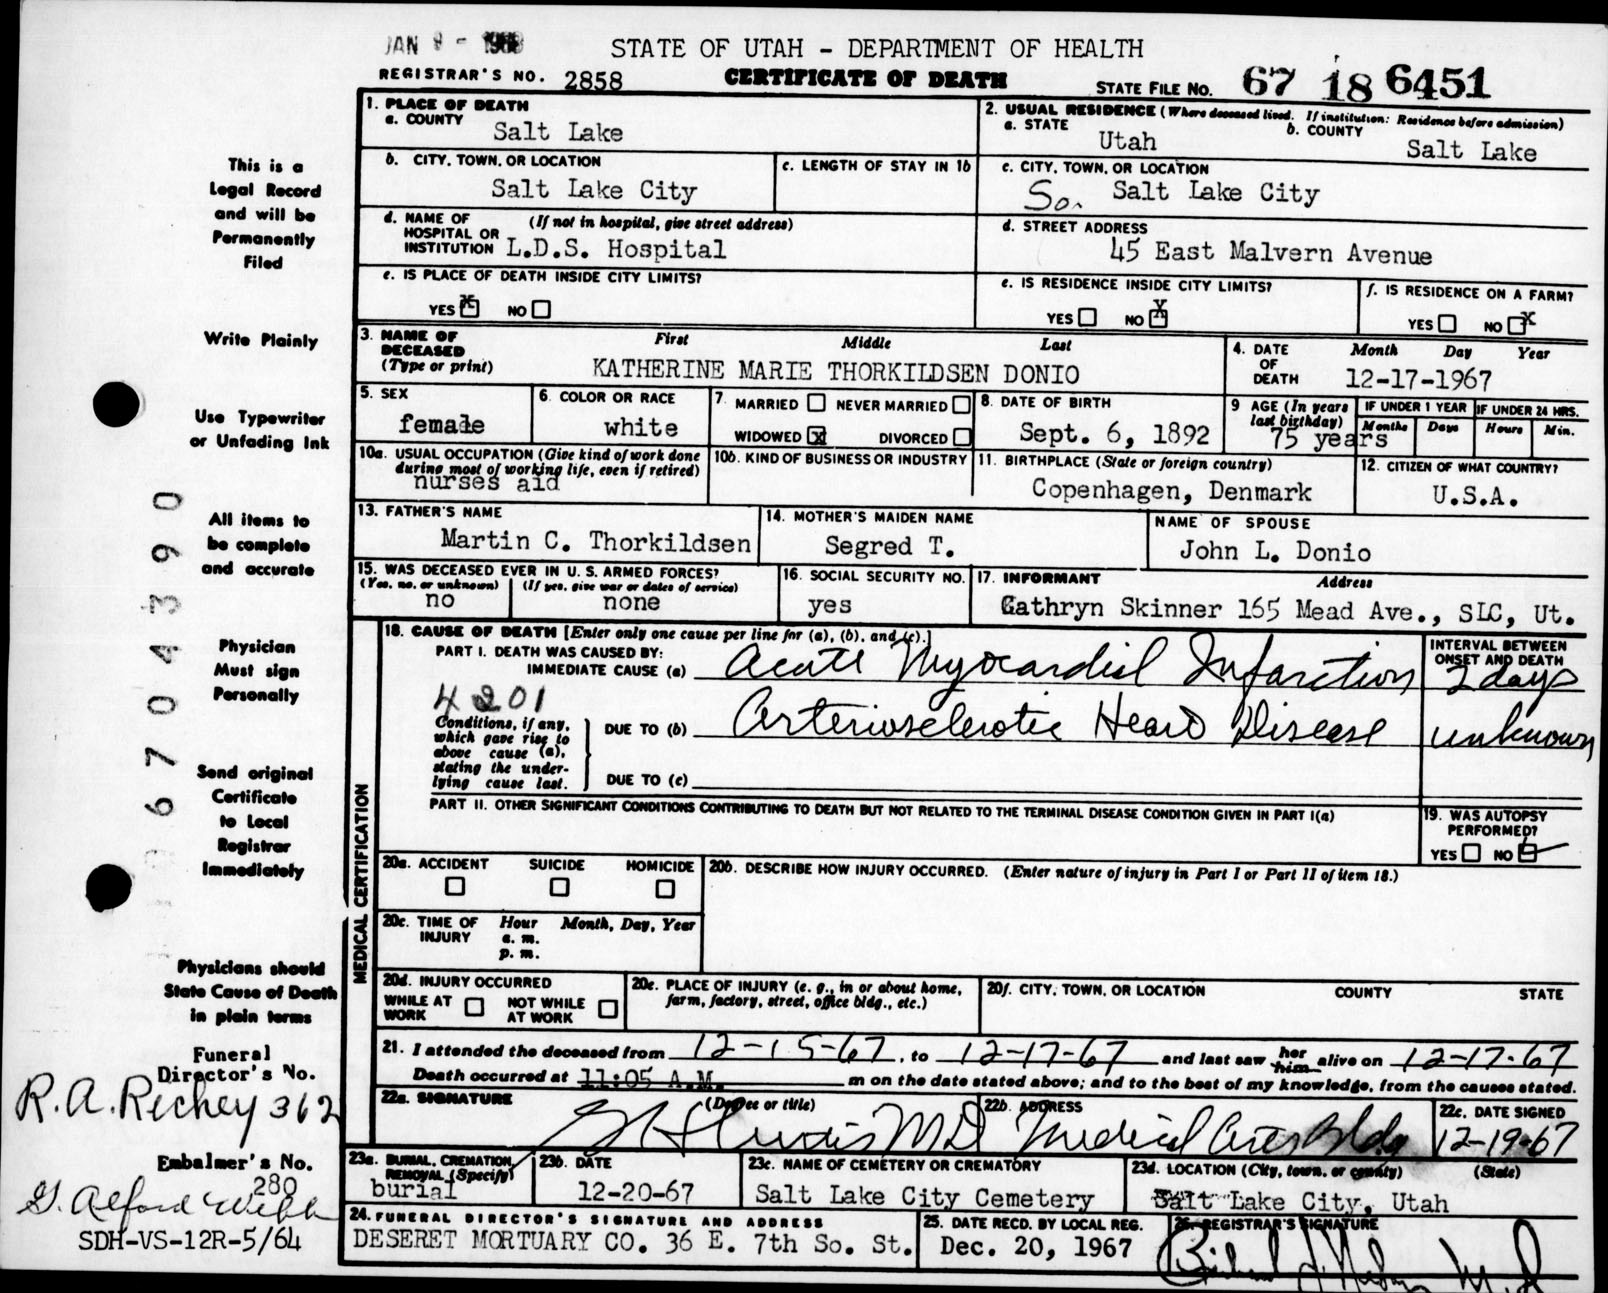 JAN 9 - 1968
STATE OF UTAH - DEPARTMENT OF HEALTH
REGISTRAR'S NO. 2858
CERTIFICATE OF DEATH
STATE FILE NO. 67 18 6451
This is a
Legal Record
and will be
Permanently
Filed
Write Plainly
Use Typewriter
or Unfading Ink
All items to
be complete
and accurate
Physician
Must sign
Personally
Send original
Certificate
to Local
Registrar
Immediately
Physicians should
State Cause of Death
in plain terms
Funeral
Director's No.
R.A. Richey 362
Embalmer's No.
280
G. Alford Webb
SDH-VS-12R-5/64
6704390
1. PLACE OF DEATH
a. COUNTY Salt Lake
2. USUAL RESIDENCE (Where deceased lived. If institution: Residence before admission)
a. STATE Utah b. COUNTY Salt Lake
b. CITY, TOWN, OR LOCATION Salt Lake City
c. LENGTH OF STAY IN 1b
c. CITY, TOWN, OR LOCATION So. Salt Lake City
d. NAME OF HOSPITAL OR INSTITUTION (If not in hospital, give street address) L.D.S. Hospital
d. STREET ADDRESS 45 East Malvern Avenue
e. IS PLACE OF DEATH INSIDE CITY LIMITS?
YES X NO
e. IS RESIDENCE INSIDE CITY LIMITS?
YES NO X
f. IS RESIDENCE ON A FARM?
YES NO X
3. NAME OF DECEASED (Type or print) First Middle Last
KATHERINE MARIE THORKILDSEN DONIO
4. DATE OF DEATH Month Day Year
12-17-1967
5. SEX female
6. COLOR OR RACE white
7. MARRIED NEVER MARRIED
WIDOWED X DIVORCED
8. DATE OF BIRTH Sept. 6, 1892
9 AGE (In years last birthday) 75 years
IF UNDER 1 YEAR Months Days
IF UNDER 24 HRS. Hours Min.
10a. USUAL OCCUPATION (Give kind of work done during most of working life, even if retired)
nurses aid
10b. KIND OF BUSINESS OR INDUSTRY
11. BIRTHPLACE (State or foreign country)
Copenhagen, Denmark
12. CITIZEN OF WHAT COUNTRY?
U.S.A.
13. FATHER'S NAME
Martin C. Thorkildsen
14. MOTHER'S MAIDEN NAME
Segred T.
NAME OF SPOUSE
John L. Donio
15. WAS DECEASED EVER IN U. S. ARMED FORCES?
(Yes, no, or unknown) (If yes, give war or dates of service)
no none
16. SOCIAL SECURITY NO.
yes
17. INFORMANT Address
Cathryn Skinner 165 Mead Ave., SLC, Ut.
MEDICAL CERTIFICATION
18. CAUSE OF DEATH [Enter only one cause per line for (a), (b), and (c).]
INTERVAL BETWEEN ONSET AND DEATH
PART I. DEATH WAS CAUSED BY:
IMMEDIATE CAUSE (a) Acute Myocardial Infarction 2 days
4201
Conditions, if any, which gave rise to above cause (a), stating the underlying cause last.
DUE TO (b) Arteriosclerotic Heart Disease unknown
DUE TO (c)
PART II. OTHER SIGNIFICANT CONDITIONS CONTRIBUTING TO DEATH BUT NOT RELATED TO THE TERMINAL DISEASE CONDITION GIVEN IN PART I(a)
19. WAS AUTOPSY PERFORMED?
YES NO
20a. ACCIDENT SUICIDE HOMICIDE
20b. DESCRIBE HOW INJURY OCCURRED. (Enter nature of injury in Part I or Part II of item 18.)
20c. TIME OF INJURY Hour Month, Day, Year
a. m.
p. m.
20d. INJURY OCCURRED
WHILE AT WORK NOT WHILE AT WORK
20e. PLACE OF INJURY (e. g., in or about home, farm, factory, street, office bldg., etc.)
20f. CITY, TOWN, OR LOCATION COUNTY STATE
21. I attended the deceased from 12-15-67, to 12-17-67 and last saw her him alive on 12-17-67
Death occurred at 11:05 A.M. m on the date stated above; and to the best of my knowledge, from the causes stated.
22a. SIGNATURE (Degree or title) MD
22b. ADDRESS Medical Arts Bldg
22c. DATE SIGNED 12-19-67
23a. BURIAL, CREMATION, REMOVAL (Specify)
burial
23b. DATE
12-20-67
23c. NAME OF CEMETERY OR CREMATORY
Salt Lake City Cemetery
23d. LOCATION (City, town, or county) (State)
Salt Lake City, Utah
24. FUNERAL DIRECTOR'S SIGNATURE AND ADDRESS
DESERET MORTUARY CO. 36 E. 7th So. St.
25. DATE RECD. BY LOCAL REG.
Dec. 20, 1967
26. REGISTRAR'S SIGNATURE